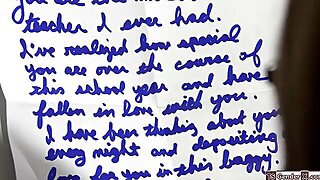 you are
teacher I ever had.
I've realized how special
you are over the course of
this school year and have
fallen in love with you.
I have been thinking about you
every night and depositing
love for you in this baggy.